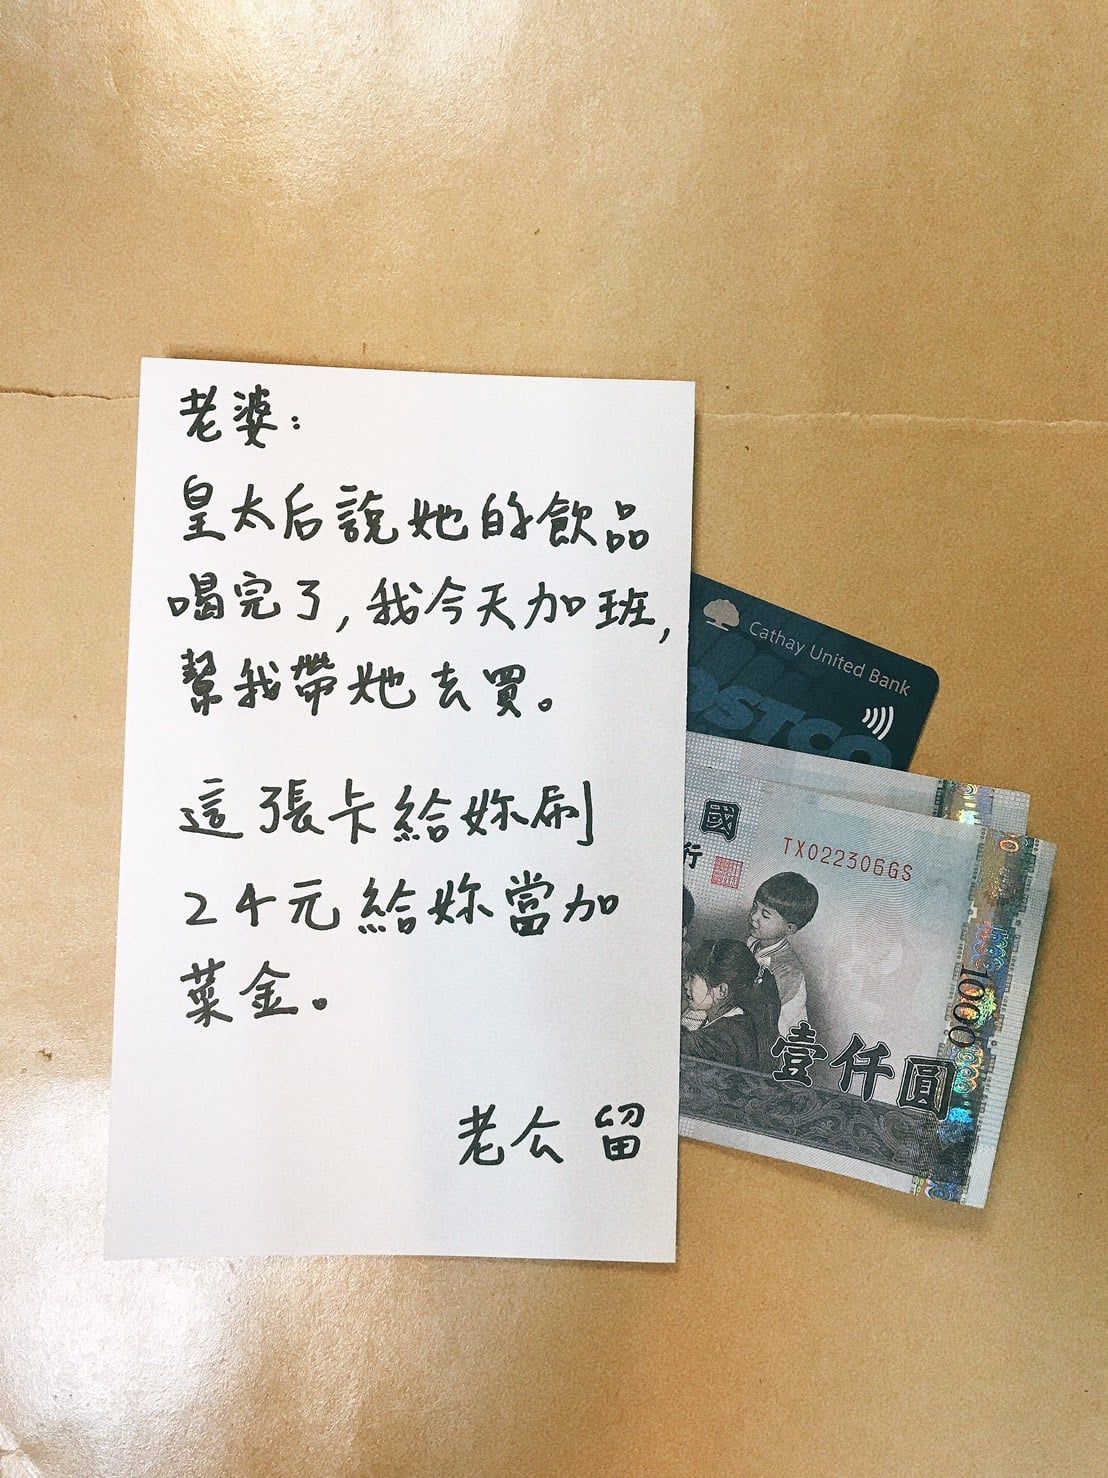 老婆：
皇太后說她的飲品
喝完了,我今天加班,
幫我帶她去買。
這張卡給妳刷
24元給妳當加
菜金。
老公 留
Cathay United Bank
OSTCO
國
行
TX022306GS
1000
壹仟圓